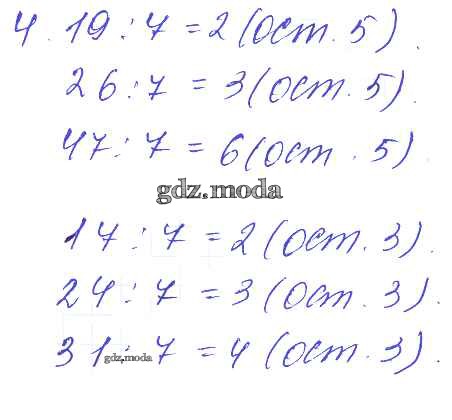 4. 19 : 7 = 2 (ост. 5).
26 : 7 = 3 (ост. 5).
47 : 7 = 6 (ост. 5).
gdz.moda
17 : 7 = 2 (ост. 3).
24 : 7 = 3 (ост. 3).
31 : 7 = 4 (ост. 3).
gdz.moda